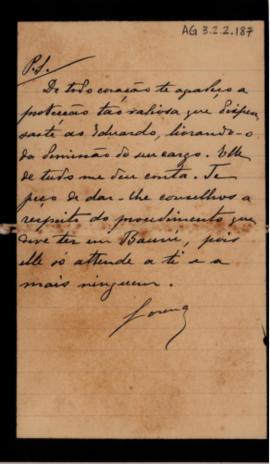 AG 3.2.2.187
P.S.
De todo coração te agradeço a
protecção tão valiosa que dispen-
saste ao Eduardo, livrando-o
da demissão do seu cargo. Elle
de tudo me deu conta. Te
peço de dar-lhe conselhos a
respeito do procedimento que
deve ter em Bauru, pois
elle só attende a ti e a
mais ninguem.